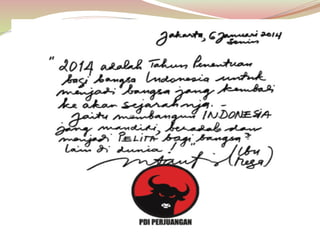 Jakarta, 6 Januari 2014
Senin
"2014 adalah Tahun Penentuan
bagi bangsa Indonesia untuk
menjadi bangsa jang kembali
ke akar sejarahnja. -
Jaitu membangun INDONESIA
jang mandiri, beradab dan
menjadi PELITA bagi bangsa2
lain di dunia!"
(Ibu
Mega)
PDI PERJUANGAN